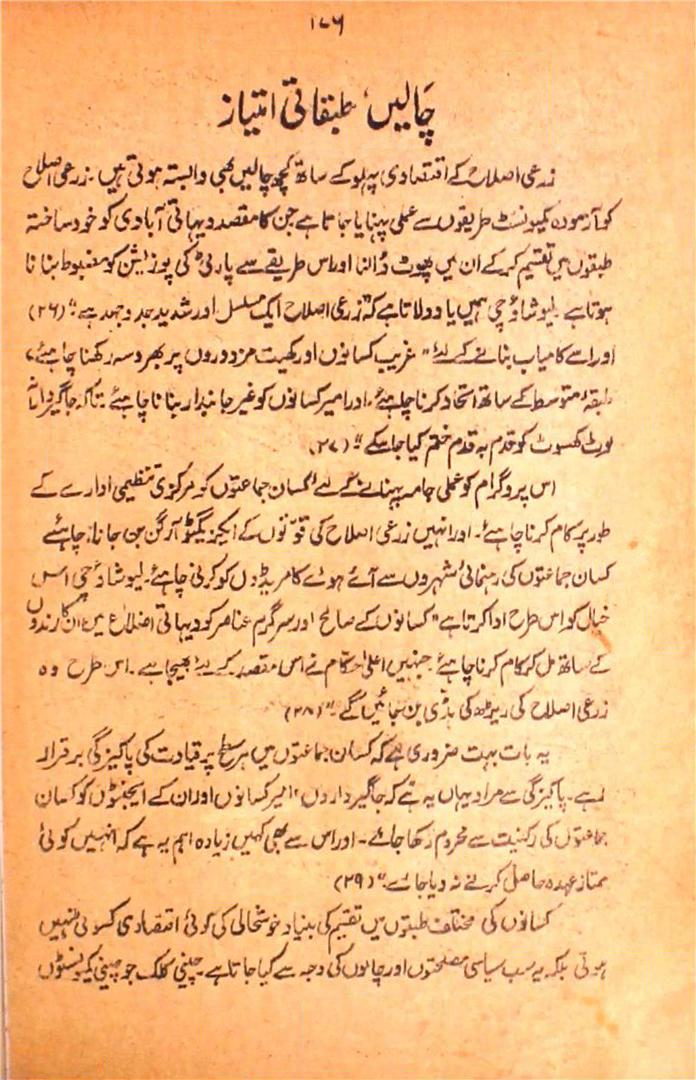 ۱۷۶
چالیں، طبقاتی امتیاز
زرعی اصلاح کے اقتصادی پہلو کے ساتھ کچھ چالیں بھی وابستہ ہوتی ہیں۔ زرعی اصلاح
کو آزمودہ کمیونسٹ طریقوں سے عملی پہنایا جاتا ہے جن کا مقصد دیہاتی آبادی کو خود ساختہ
طبقوں میں تقسیم کرکے ان میں پھوٹ ڈالنا اور اس طریقے سے پارٹی کی پوزیشن کو مضبوط بنانا
ہوتا ہے۔ لیوشاؤچی ہمیں یاد دلاتا ہے کہ "زرعی اصلاح ایک مسلسل اور شدید جدوجہد ہے۔" (۲۶)
اور اسے کامیاب بنانے کے لئے "غریب کسانوں اور کھیت مزدوروں پر بھروسہ رکھنا چاہئے،
طبقۂ متوسط کے ساتھ اتحاد کرنا چاہئے۔ اور امیر کسانوں کو غیر جانبدار بنانا چاہئے۔ تاکہ جاگیردارانہ
لوٹ کھسوٹ کو قدم بہ قدم ختم کیا جاسکے۔" (۲۷)
اس پروگرام کو عملی جامہ پہنانے کے لئے "کسان جماعتوں کو مرکزی تنظیمی ادارے کے
طور پر کام کرنا چاہئے۔ اور انہیں زرعی اصلاح کی قوتوں کے ایگزیکٹو آرگن بن جانا چاہئے
کسان جماعتوں کی رہنمائی شہروں سے آئے ہوئے کامریڈوں کو کرنی چاہئے۔ لیوشاؤچی اس
خیال کو اس طرح ادا کرتا ہے "کسانوں کے صالح اور سرگرم عناصر کو دیہاتی اضلاع میں ان کارندوں
کے ساتھ مل کر کام کرنا چاہئے جنہیں اعلیٰ حکام نے اس مقصد کے لئے بھیجا ہے۔ اس طرح وہ
زرعی اصلاح کی ریڑھ کی ہڈی بن جائیں گے۔" (۲۸)
یہ بات بہت ضروری ہے کہ کسان جماعتوں میں ہر سطح پر قیادت کی پاکیزگی برقرار
رہے۔ پاکیزگی سے مراد یہاں یہ ہے کہ جاگیرداروں، امیر کسانوں اور ان کے ایجنٹوں کو کسان
جماعتوں کی رکنیت سے محروم رکھا جائے۔ اور اس سے بھی کہیں زیادہ اہم یہ ہے کہ انہیں کوئی
ممتاز عہدہ حاصل کرنے نہ دیا جائے۔" (۲۹)
کسانوں کی مختلف طبقوں میں تقسیم کی بنیاد خوشحالی کی کوئی اقتصادی کسوٹی نہیں
ہوتی بلکہ یہ سب سیاسی مصلحتوں اور چالوں کی وجہ سے کیا جاتا ہے۔ چینی کلک جو چینی کمیونسٹوں